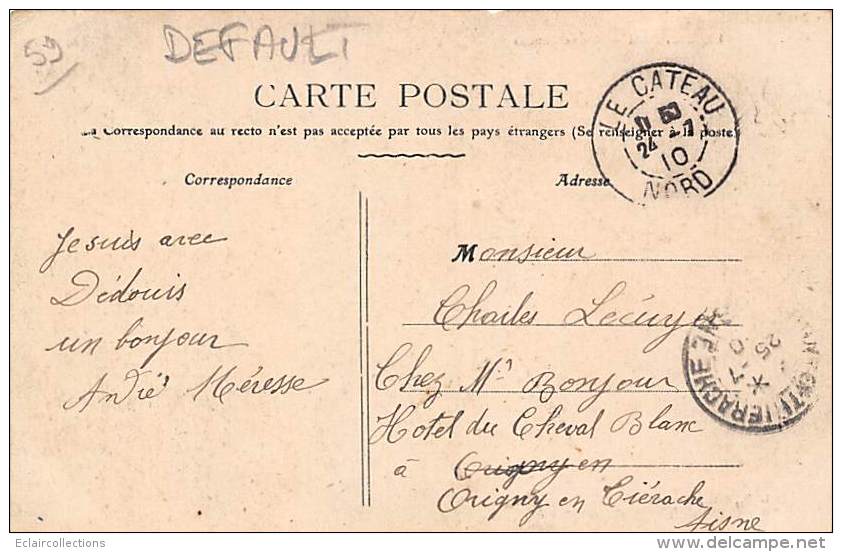 59
DEFAULT
CARTE POSTALE
La Correspondance au recto n'est pas acceptée par tous les pays étrangers (Se renseigner à la poste)
Correspondance
Adresse
LE CATEAU
24 -7
10
NORD
Je suis avec
Dédouis
un bonjour
André Méresse
Monsieur
Charles Lécuyer
Chez Mr Bonjour
Hotel du Cheval Blanc
à Origny en
Origny en Tiérache
Aisne
25
TIERACHE
Eclaircollections
delcampe.net